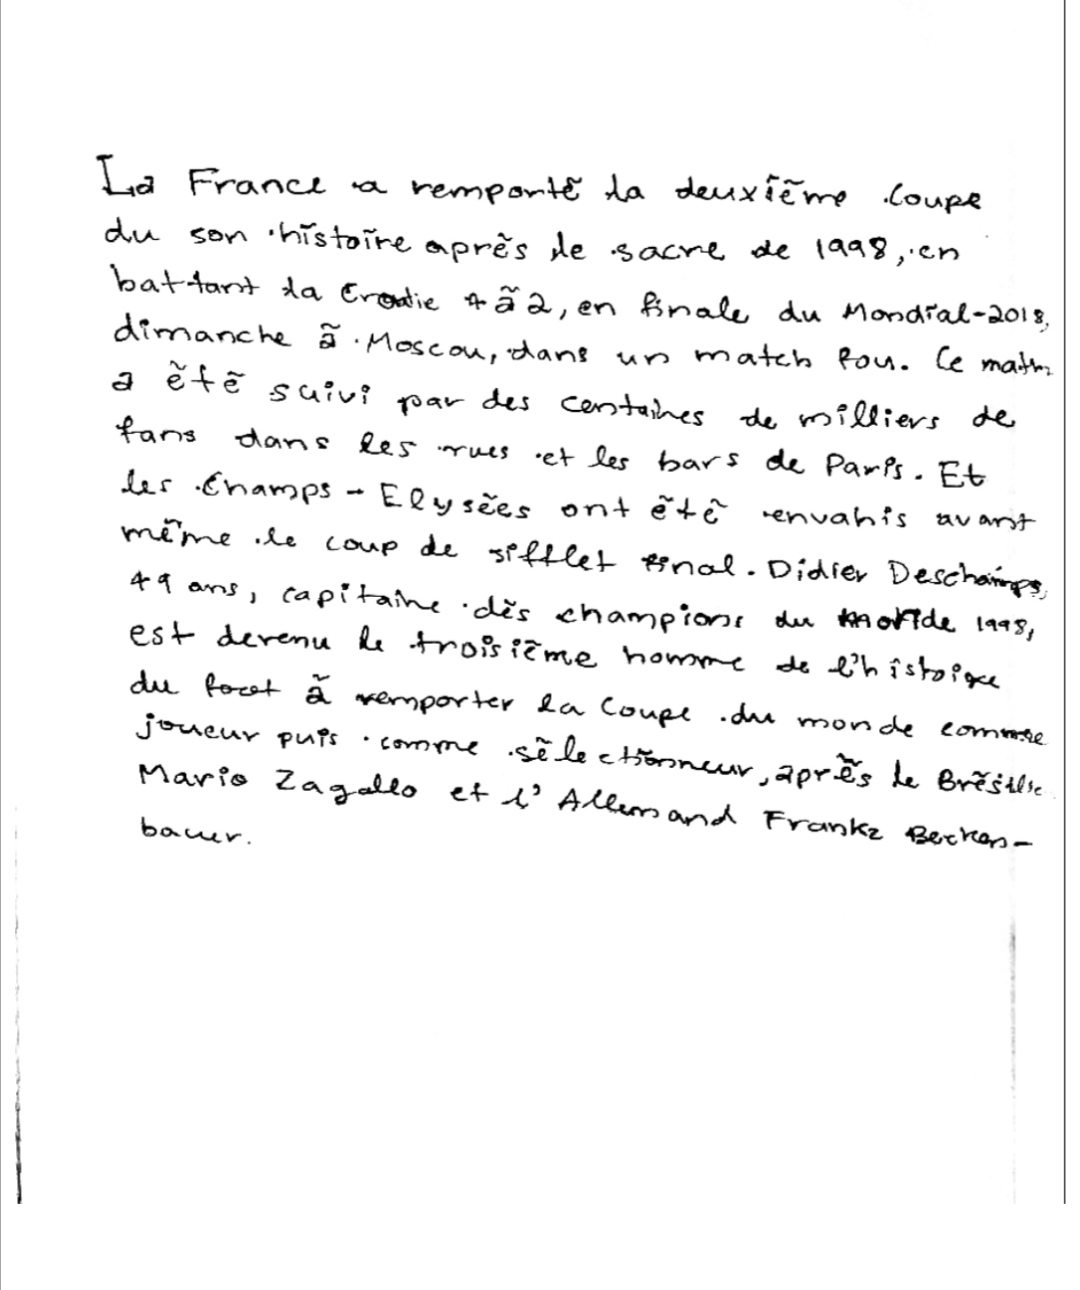 La France a remporté la deuxième Coupe
du son histoire après le sacre de 1998, en
battant la Croatie 4 à 2, en finale du Mondial-2018,
dimanche à Moscou, dans un match fou. Ce math
a été suivi par des centaines de milliers de
fans dans les rues et les bars de Paris. Et
les Champs-Elysées ont été envahis avant
même le coup de sifflet final. Didier Deschamps,
49 ans, capitaine dès champions du monde 1998,
est devenu le troisième homme de l'histoire
du foot à remporter la Coupe du monde comme
joueur puis comme sélectionneur, après le Brésilie
Mario Zagallo et l'Allemand Frankz Becken-
bauer.